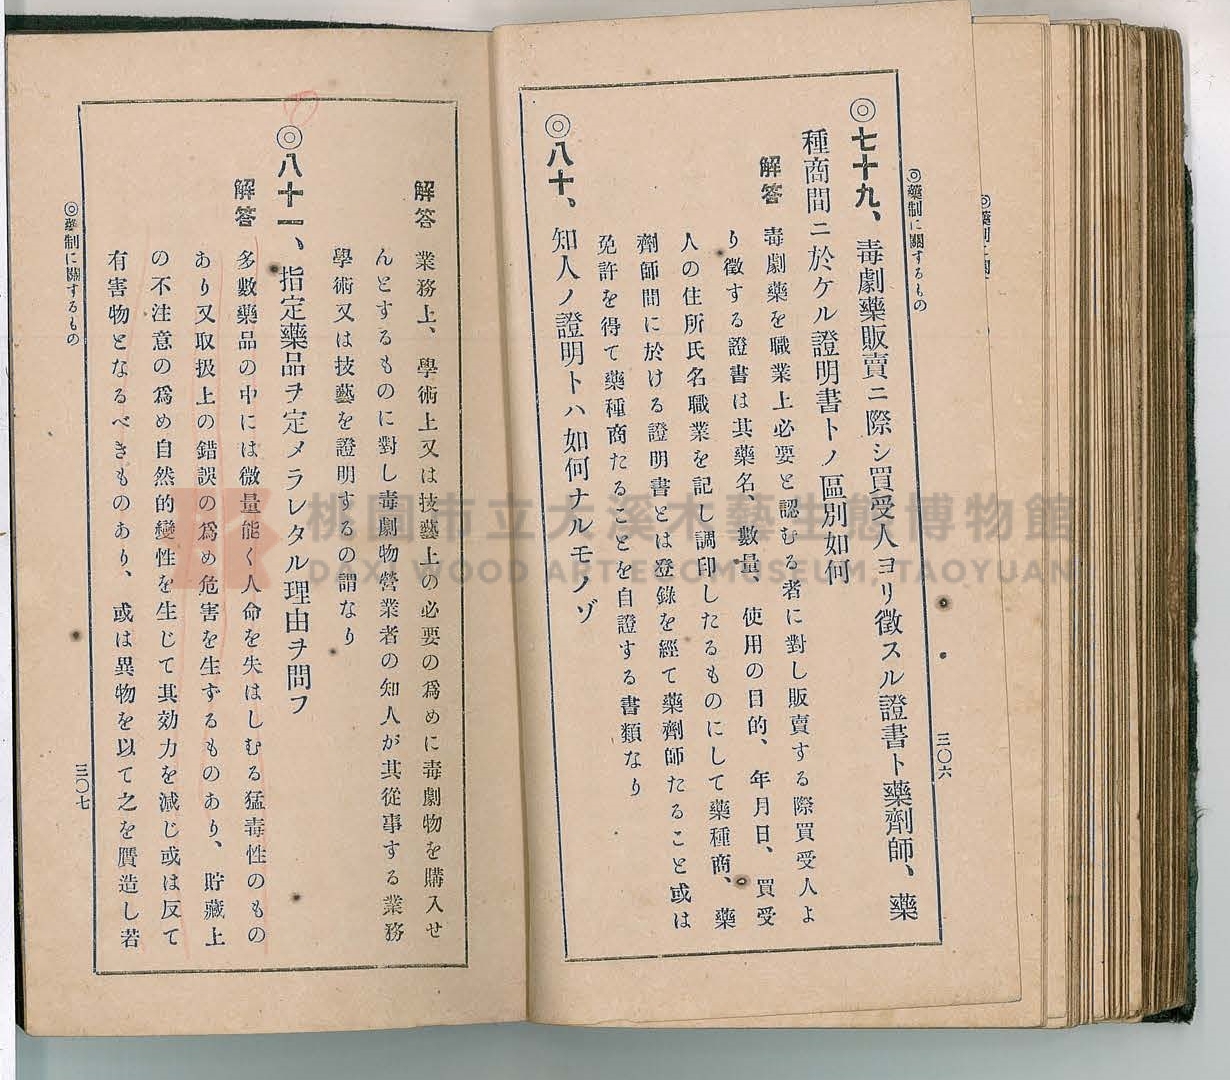 ◎藥制に關するもの
三〇六
◎七十九、毒劇藥販賣ニ際シ買受人ヨリ徵スル證書ト藥劑師、藥
種商間ニ於ケル證明書トノ區別如何
解答 毒劇藥を職業上必要と認むる者に對し販賣する際買受人よ
り徵する證書は其藥名、數量、使用の目的、年月日、買受
人の住所氏名職業を記し調印したるものにして藥種商、藥
劑師間に於ける證明書とは登錄を經て藥劑師たること或は
免許を得て藥種商たることを自證する書類なり
◎八十、知人ノ證明トハ如何ナルモノゾ
解答 業務上、學術上又は技藝上の必要の爲めに毒劇物を購入せ
んとするものに對し毒劇物營業者の知人が其從事する業務
學術又は技藝を證明するの謂なり
◎八十一、指定藥品ヲ定メラレタル理由ヲ問フ
解答 多數藥品の中には微量能く人命を失はしむる猛毒性のもの
あり又取扱上の錯誤の爲め危害を生ずるものあり、貯藏上
の不注意の爲め自然的變性を生じて其効力を減じ或は反て
有害物となるべきものあり、或は異物を以て之を贋造し若
◎藥制に關するもの
三〇七
桃園市立大溪木藝生態博物館
DAXI WOOD ART ECOMUSEUM, TAOYUAN